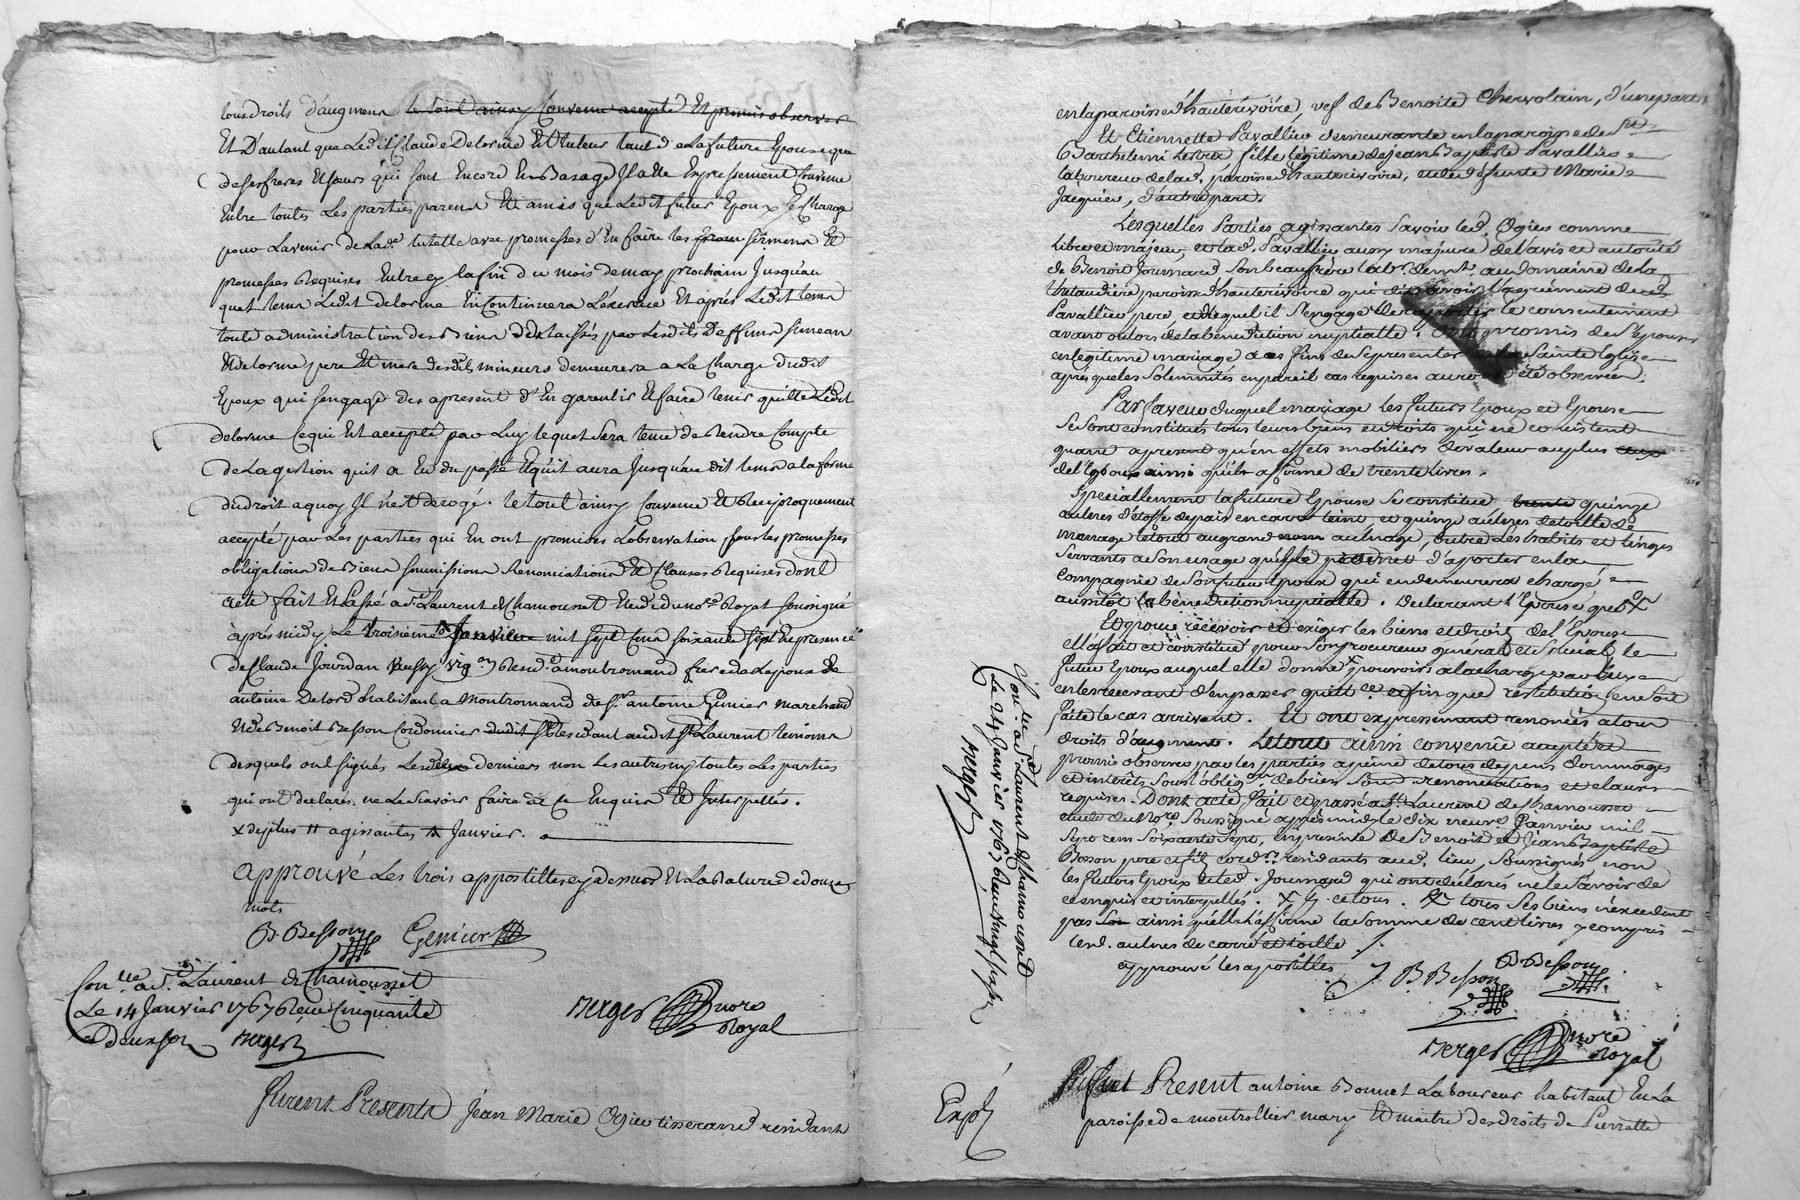 tous droits d'augmens le tout ainsy Convenu accepté Et promis observer
Et D'autant que Ledit Claude Delorme Est tuteur tant d e la future Epouse que
de ses freres Et sœurs qui sont Encore En Bas age Il a Eté Expressement Convenu
Entre toutes Les parties parens Et amis que Ledit futur Epoux Se Charge
pour Lavenir de Lade tutelle avec promesses d'En faire les sermens Et
promesses Requises Entre cy la fin du mois de may prochain Jusqu'au
quel tems Ledit delorme En Continuera L'exercice Et après Ledit tems
toute administration des Biens delaissés par Lesdits Deffunts simean
Et delorme pere Et mere desdits mineurs demeurera a La Charge dudit
Epoux qui s'engage des apresent d'En garentir Et faire tenir quitte Ledit
delorme Ce qui Est accepté par Luy lequel Sera tenu de Rendre Compte
de La gestion quil a Eu du passé Et qu'il aura Jusqu'au dit tems a la forme
du droit a quoy Il n'est derogé. le tout ainsy Convenu Et Reciproquement
accepté par Les parties qui En ont promises L'observation sous les promesses
obligations de Biens soumissions Renonciations Et Clauses Requises dont
acte fait Et Passé a St Laurent de Chamousset Etude du nore Royal soussigné
après midy Le troisieme Janvier mil sept Cens soixante sept En presence
de Claude Jourdan Bussy vigon Resid.t a montromand frere de la Epouse de
antoine Delord habitant a Montromand de Sr antoine Genier Marchand
Et de Benoit Besson Cordonnier Residant audit St Laurent temoins
desquels ont signés Les deux derniers non Les autres ny toutes Les parties
qui ont declarés ne Le Scavoir faire de Ce Enquis Et Interpellés.
x de plus # agissantes # Janvier.
approuvé Les trois appostilles cy dessus Et La Rature de douze
mots
B. Besson Genier
Con.lle a St Laurent de Chamousset
Le 14 Janvier 1767 Reçu Cinquante
deux sols Berger
Berger nore
Royal
Furent Presents Jean Marie Ogier tisserand residant
en la paroisse d'hauterivoire, vef de Benoite Chervolain, d'une part
Et Etiennette Pavallier demeurante en la paroisse de St
Barthelemi Lestra, fille légitime de jean Baptiste Pavallier
laboureur de lad. paroisse d'hauterivoire, et de defunte Marie
Jaquier, d'autre part.
Lesquelles Parties agissantes savoir led. Ogier comme
libre et majeur, et lad. Pavallier aussy majeure de l'avis et autorité
de Benoit Journard son beaufrère labr. demt. au domaine de la
paroisse d'hauterivoire qui dit avoir l'agrément dud.
Pavallier pere, et duquel il s'engage de rapporter le consentement
avant ou lors de la bénédiction nuptialle. Ont promis de s'épouser
en légitime mariage a ces fins de se présenter Sainte Eglise
après que les Solemnités en pareil cas requises auront été observées.
Par faveur duquel mariage les futurs Epoux et Epouse
se sont constitués tous leurs biens et droits qui ne consistent
quant a present qu'en effets mobiliers de valeur au plus
de l'Epoux ainsi qu'il affirme de trente Livres.
Specialement la future Epouse se constitue quinze
aulnes d'étoffe de païs en carré teint, et quinze aulnes de toille de
menage le tout au grand aulnage, outre les habits et linges
servants a son usage qu'elle promet d'aporter en la
compagnie de son futur Epoux qui en demeurera chargé
aussitôt la bénédiction nuptialle. Declarant l'Epouse que
Et pour recevoir et exiger les biens et droits de l'Epouse
elle a fait et constitué pour son procureur général et special le
futur Epoux auquel elle donne pouvoirs a la charge par luy
en les recevant d'en passer quitt.ce afin que restitution en soit
faite le cas arrivant. Et ont expressement renoncés a tous
droits d'augment. Le tout ainsi convenu accepté et
promis observer par les parties a peine de tous depens dommages
et interêts sous l'oblig.on de biens sous renonciations et clauses
requises. Dont acte, fait et passé a St. Laurent de Chamousset
etude du No.re Soussigné après midy le dix neuf Janvier mil
Sept cens Soixante Sept, en presence de Benoit et Jean Baptiste
Besson pere et fils cord.rs résidants aud. lieu, Soussignés non
les futurs Epoux et led. Journard qui ont déclarés ne le savoir de
ce enquis et interpellés. X ce tous. # tous ses biens n'excedent
pas ainsi qu'elle l'affirme la somme de cent livres y compris
lesd. aulnes de carré et toille
approuvé les apostilles
B. Besson B Besson
Berger nore
Royal
Con.lle a St Laurent de Chamousset
Le 24 Janvier 1767 Reçu vingt six sols
Berger
Expd
Fut Present antoine Bonnet Laboureur habitant En La
paroisse de montrottier mary Et maitre des droits de Pierrette